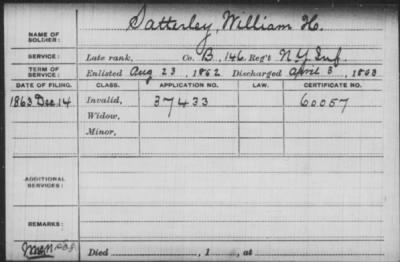 NAME OF SOLDIER: Satterley, William H.
SERVICE: Late rank, Co. B, 146 Reg't N.Y. Inf.
TERM OF SERVICE: Enlisted Aug 23, 1862 Discharged April 3, 1863
DATE OF FILING. CLASS. APPLICATION NO. LAW. CERTIFICATE NO.
1863 Dec. 14 Invalid, 37433 60057
Widow,
Minor,
ADDITIONAL SERVICES:
REMARKS:
Died, 1, at